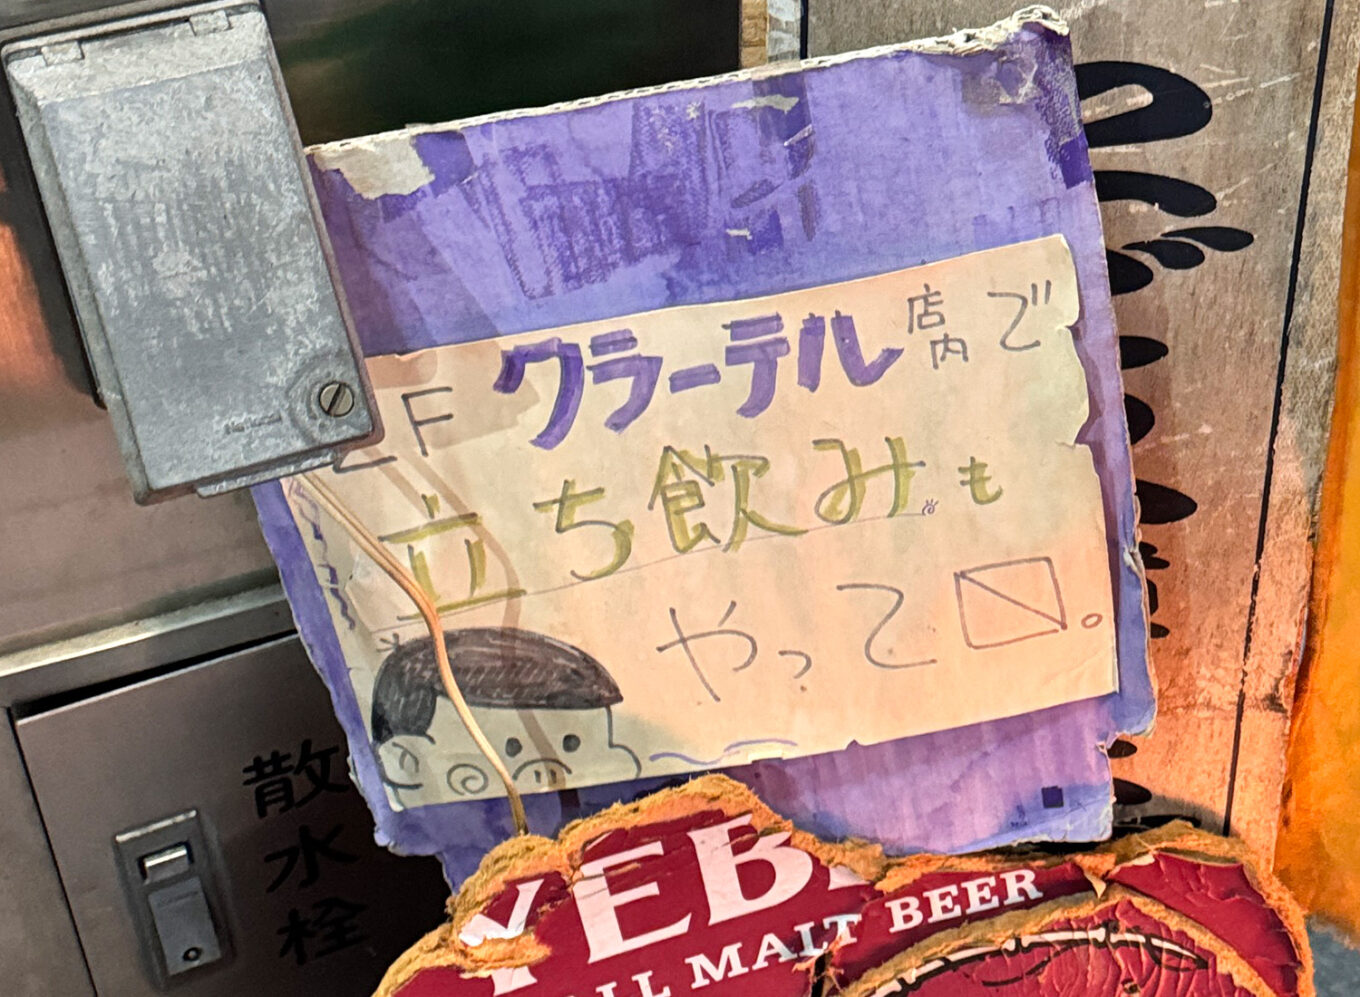 2F クラーテル店内で
立ち飲みも
やって〼。
散水栓
YEB
ALL MALT BEER